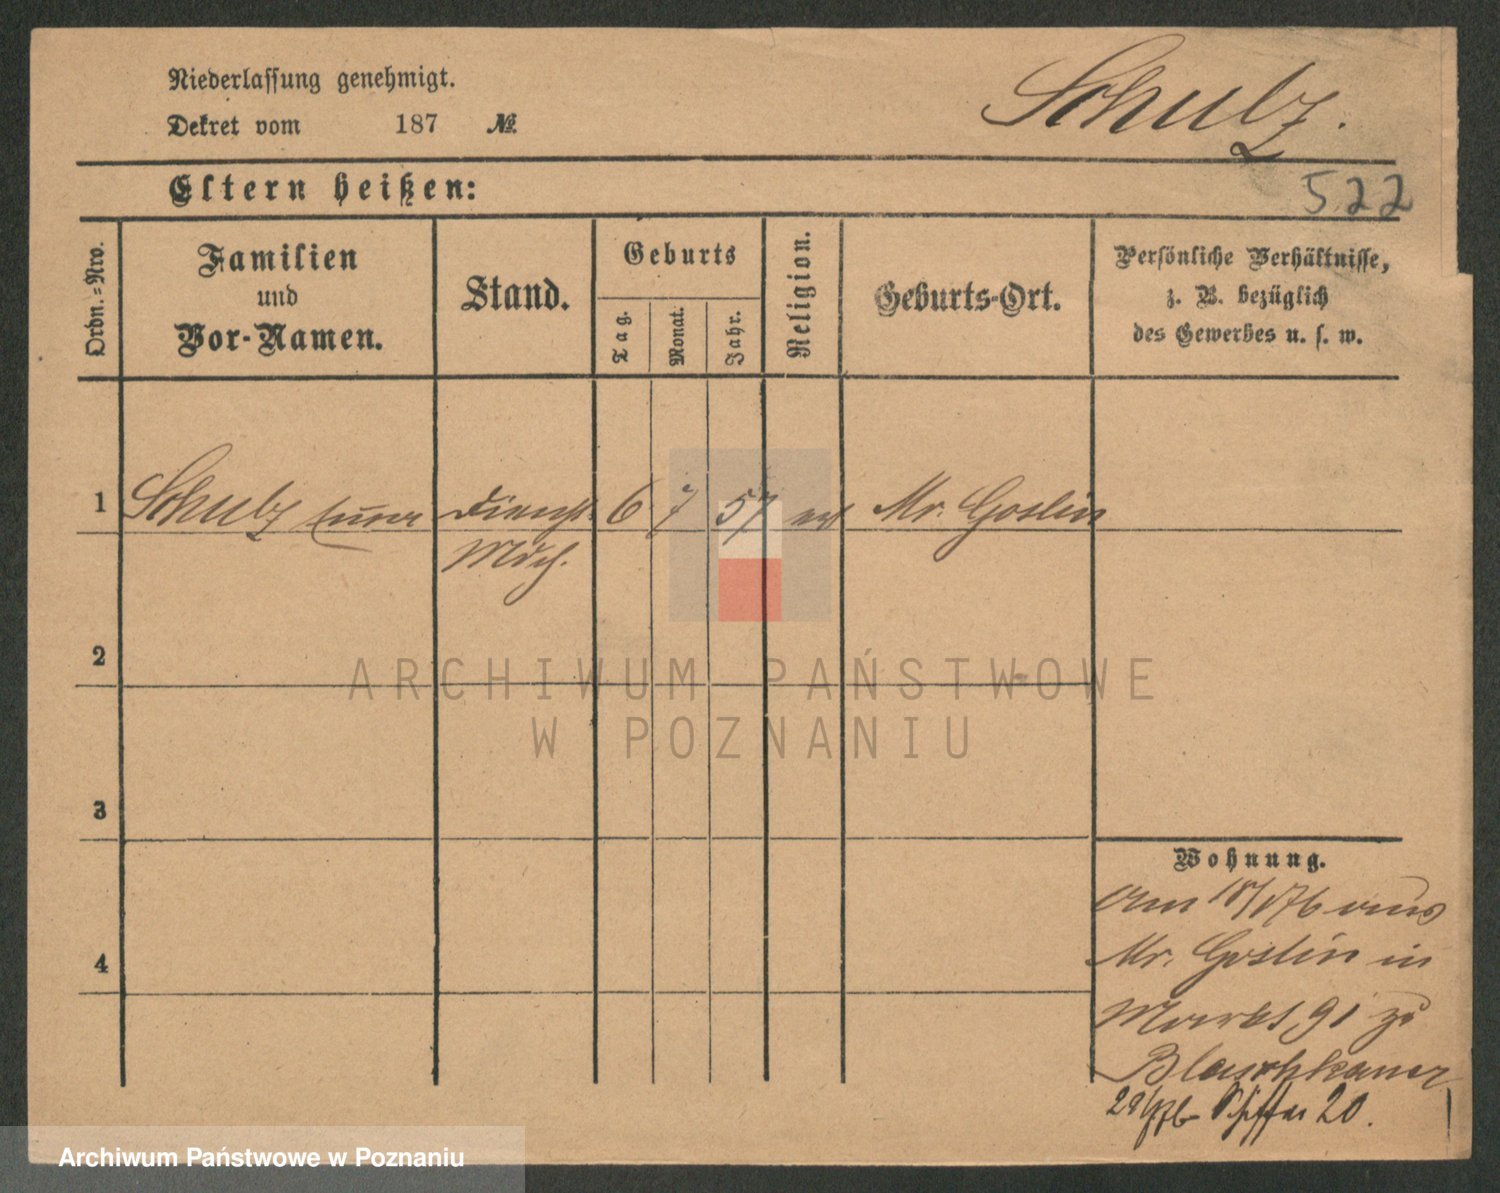 Niederlassung genehmigt.
Schulz.
Dekret vom 187 №
Eltern heißen:
522
Ordn.=Nro.
Familien
und
Vor-Namen.
Stand.
Geburts
Tag.
Monat.
Jahr.
Religion.
Geburts-Ort.
Persönliche Verhältnisse,
z. B. bezüglich
des Gewerbes u. s. w.
1 Schulz Dienst 6 7 57 Mr. Goslin
Mdch.
2
ARCHIWUM PAŃSTWOWE
W POZNANIU
3
Wohnung.
Am 18/1 76 aus
4
Mr. Goslin in
Markt 91 zu
Blaschkauer
20.
Archiwum Państwowe w Poznaniu